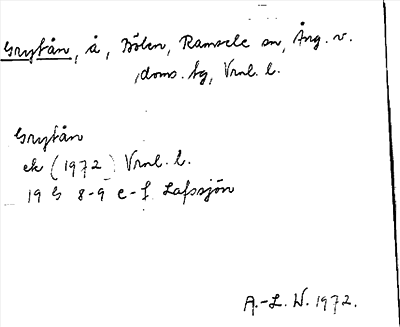 Grytån, å, Bölen, Ramsele sn, Ång. v.
doms. tg, Vrnl. l.
Grytån
ek (1972) Vrnl. l.
19 G 8-9 e-f Lafssjön
A.-L. W. 1972.